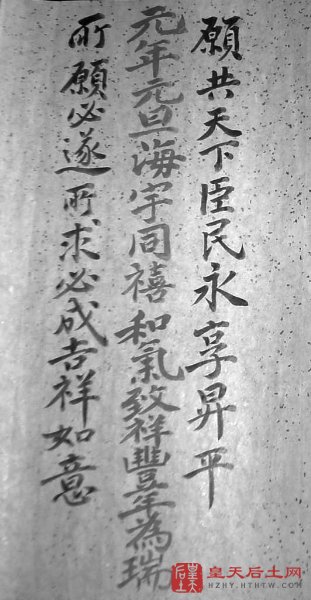 願共天下臣民永享昇平
元年元旦海宇同禧和氣致祥豐年為瑞
所願必遂所求必成吉祥如意
皇天后土
皇天后土网
HZHY.HTHTW.COM